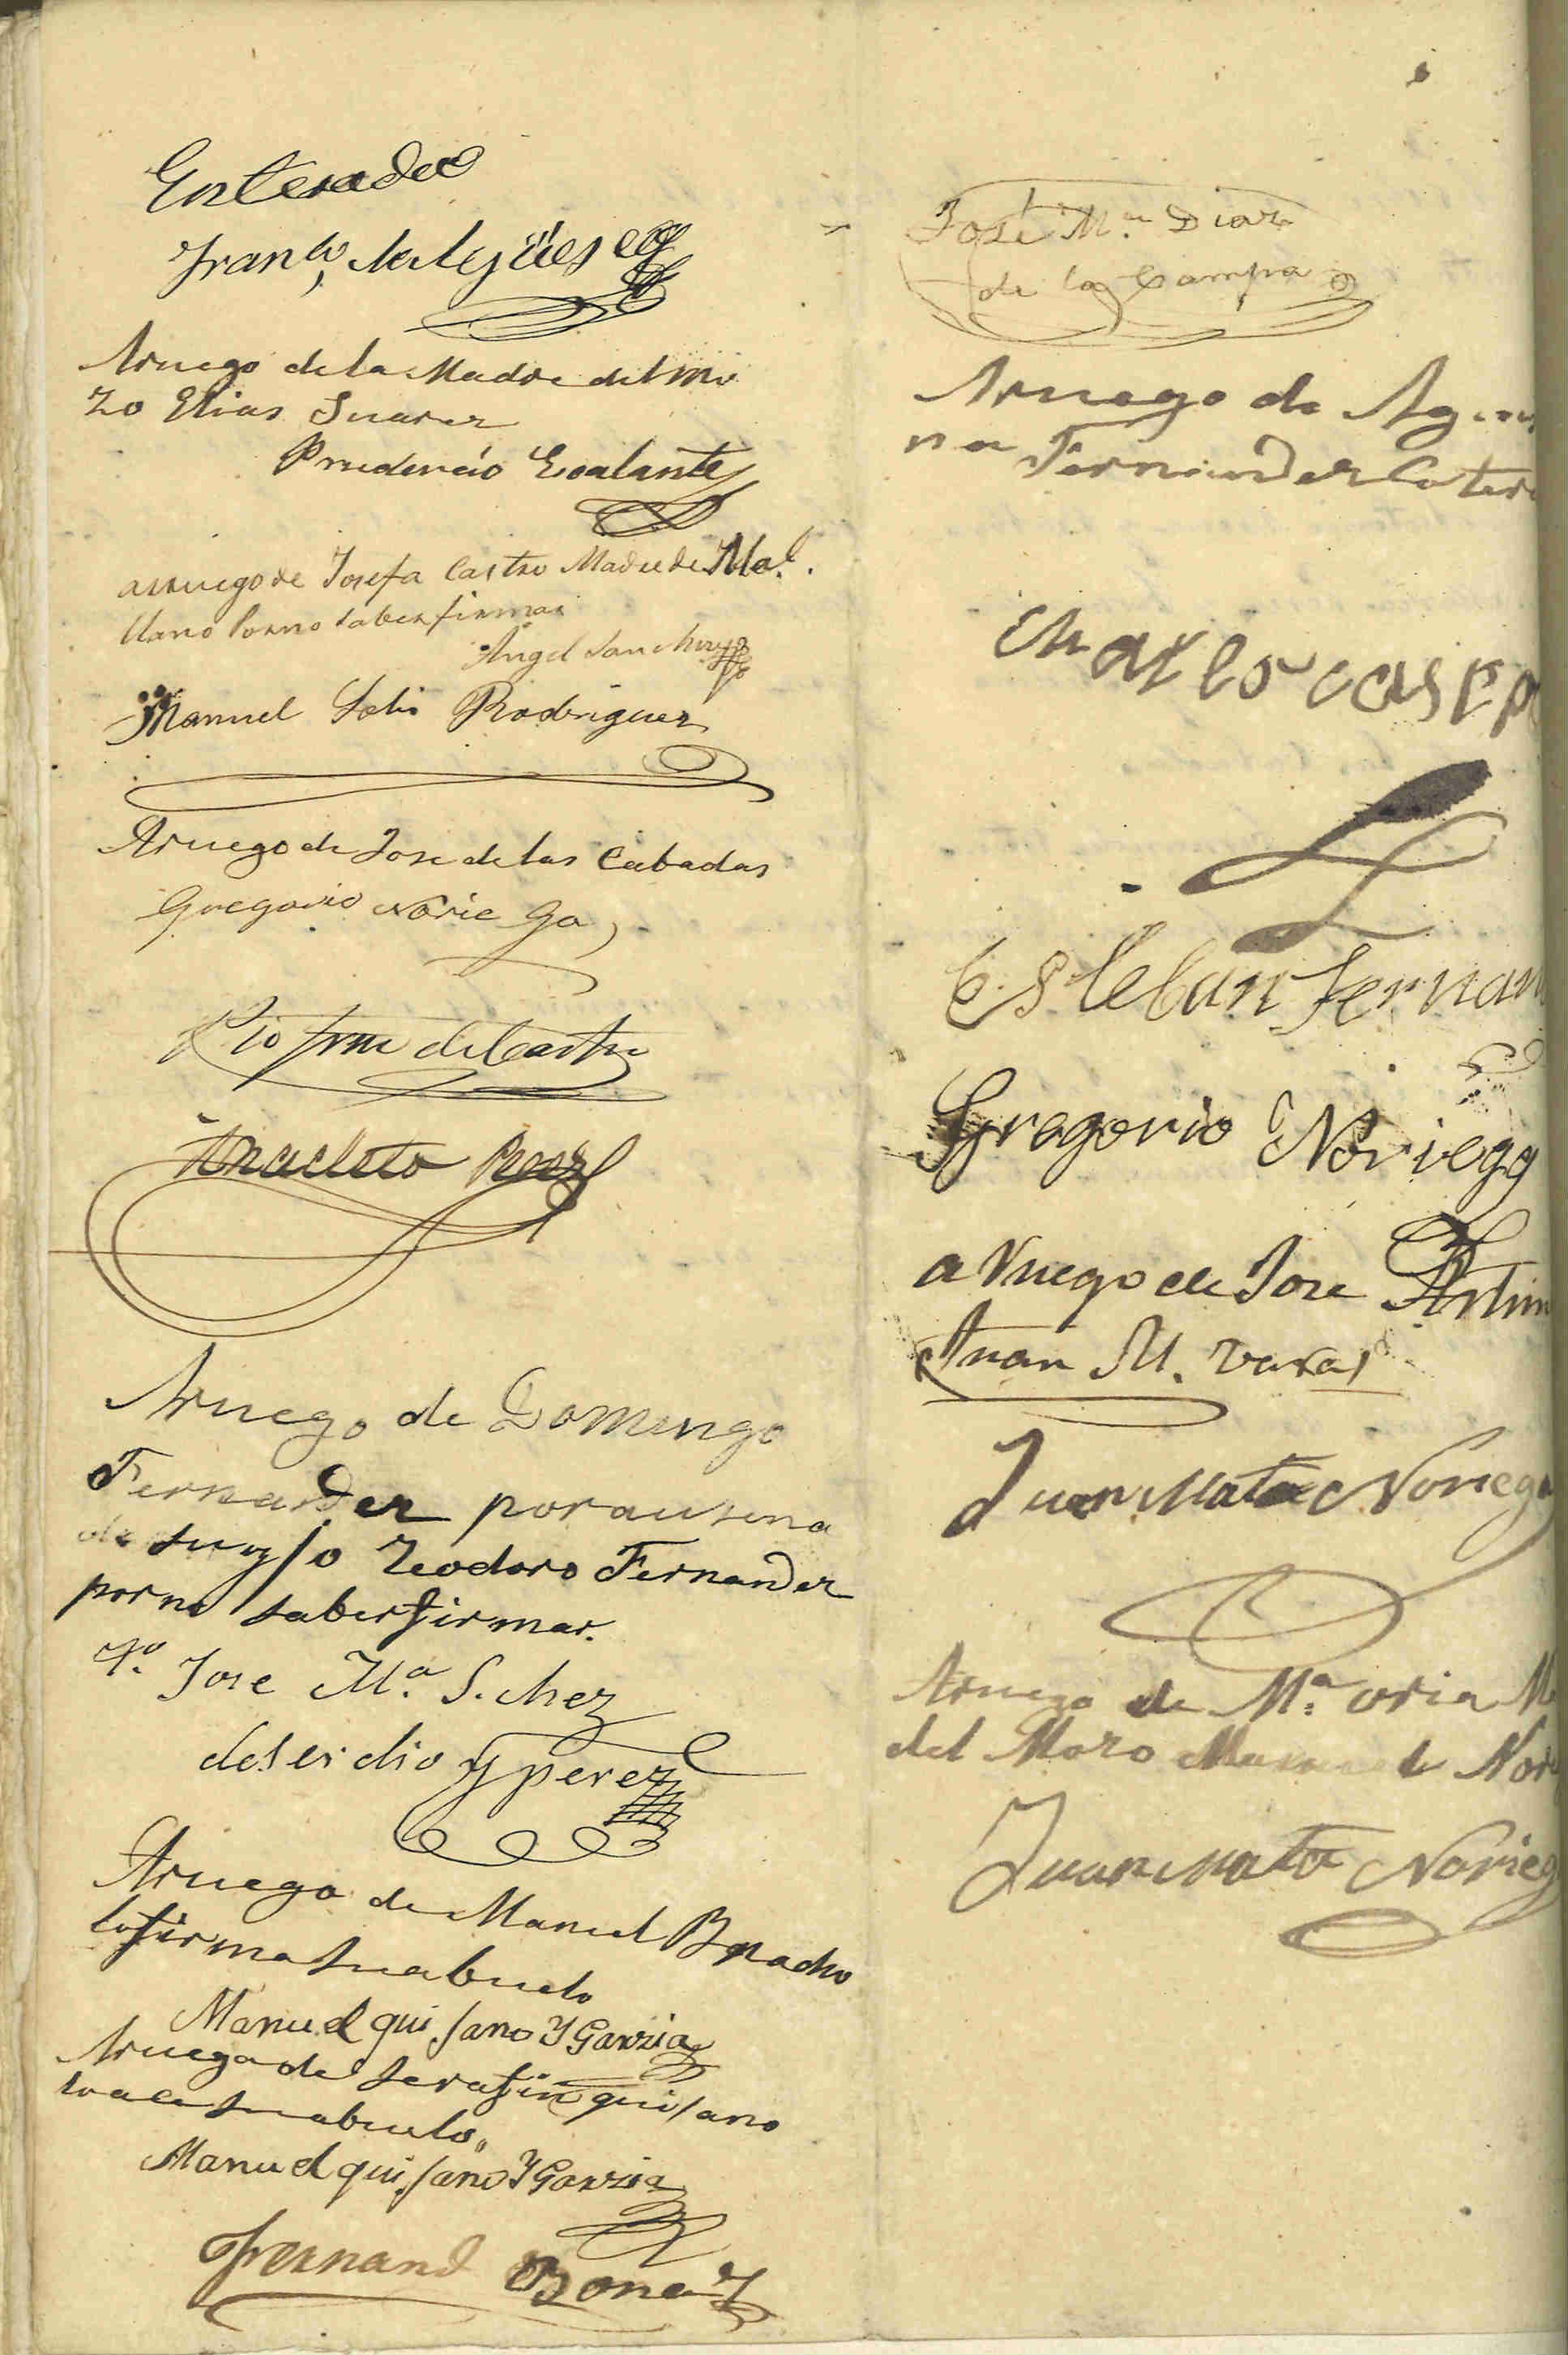 Enterado
Franco
Aruego de la Madre del mo
zo Elias Suarez
Prudencio Escalante
arruego de Josefa Castro Madre de Ml.
llano Por no saber firmar
Angel Sanchez
Manuel Solis Rodriguez
Aruego de Jose de las Cabadas
Gregorio Norie ga
Pio de Castro
Anacleto
Aruego de Domingo
Fernandez por ausena
de su yjo Teodoro Fernandez
por no saber firmar.
Jose Ma. S.chez
desei dio y perez
Aruego de Manuel
lo firma su abuelo
Manuel qui jano Y Garzia
Aruego de Serafin quijano
su abuelo
Manuel qui jano Y Garzia
Fernand
Jose Ma. Diaz
de la Campa
Aruego de Ag
na Fernandez Cotero
Esteban Fernan
Gregorio Noriega
a Ruego de Jose Antun
Juan M.
Juan Mata Noriega
Aruego de Ma. oria M
del Mozo de Nor
Juan Mata Norieg